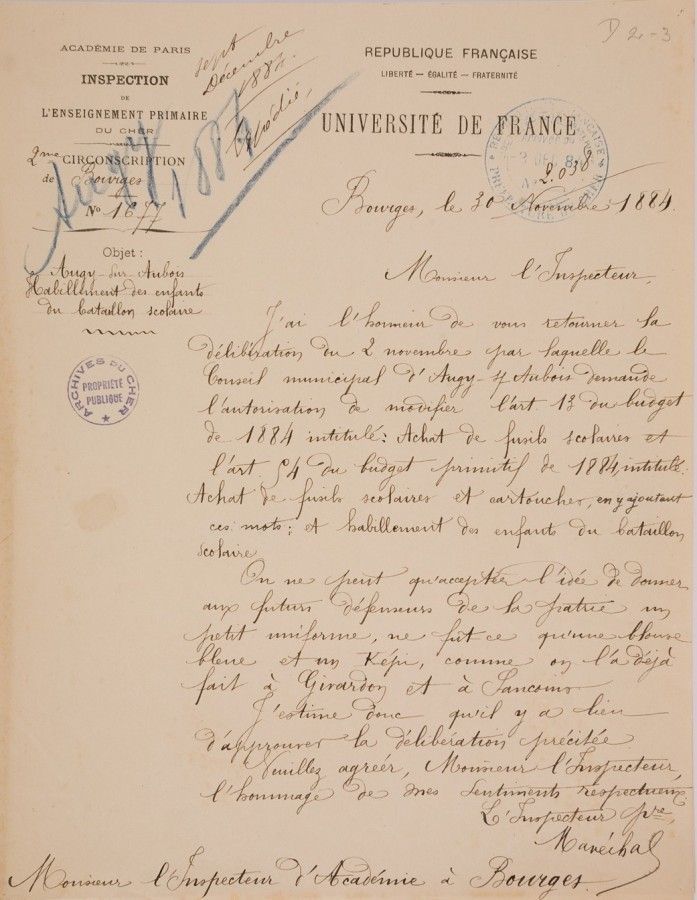 D 2-3
ACADÉMIE DE PARIS
INSPECTION
DE
L'ENSEIGNEMENT PRIMAIRE
DU CHER
2me CIRCONSCRIPTION
de Bourges
No 1677
sept
Décembre
1884.
Expédié,
Augy
1884
REPUBLIQUE FRANÇAISE
LIBERTÉ — ÉGALITÉ — FRATERNITÉ
UNIVERSITÉ DE FRANCE
2.038
Bourges, le 30 Novembre 1884.
Objet :
Augy-sur-Aubois
Habillement des enfants
du bataillon scolaire
ARCHIVES DU CHER
PROPRIÉTÉ
PUBLIQUE
Monsieur l'Inspecteur,
J'ai l'honneur de vous retourner la
délibération du 2 novembre par laquelle le
Conseil municipal d'Augy-s/Aubois demande
l'autorisation de modifier l'art. 13 du budget
de 1884 intitulé: Achat de fusils scolaires et
l'art 54 du budget primitif de 1884, intitulé:
Achat de fusils scolaires et cartouches, en y ajoutant
ces mots: et habillement des enfants du bataillon
scolaire
On ne peut qu'accepter l'idée de donner
aux futurs défenseurs de la patrie un
petit uniforme, ne fût ce qu'une blouse
bleue et un Képi, comme on l'a déjà
fait à Girardon et à Sancoins
J'estime donc qu'il y a lieu
d'approuver la délibération précitée
Veuillez agréer, Monsieur l'Inspecteur,
l'hommage de mes sentiments respectueux
L'Inspecteur pre,
Maréchal
Monsieur l'Inspecteur d'Académie à Bourges